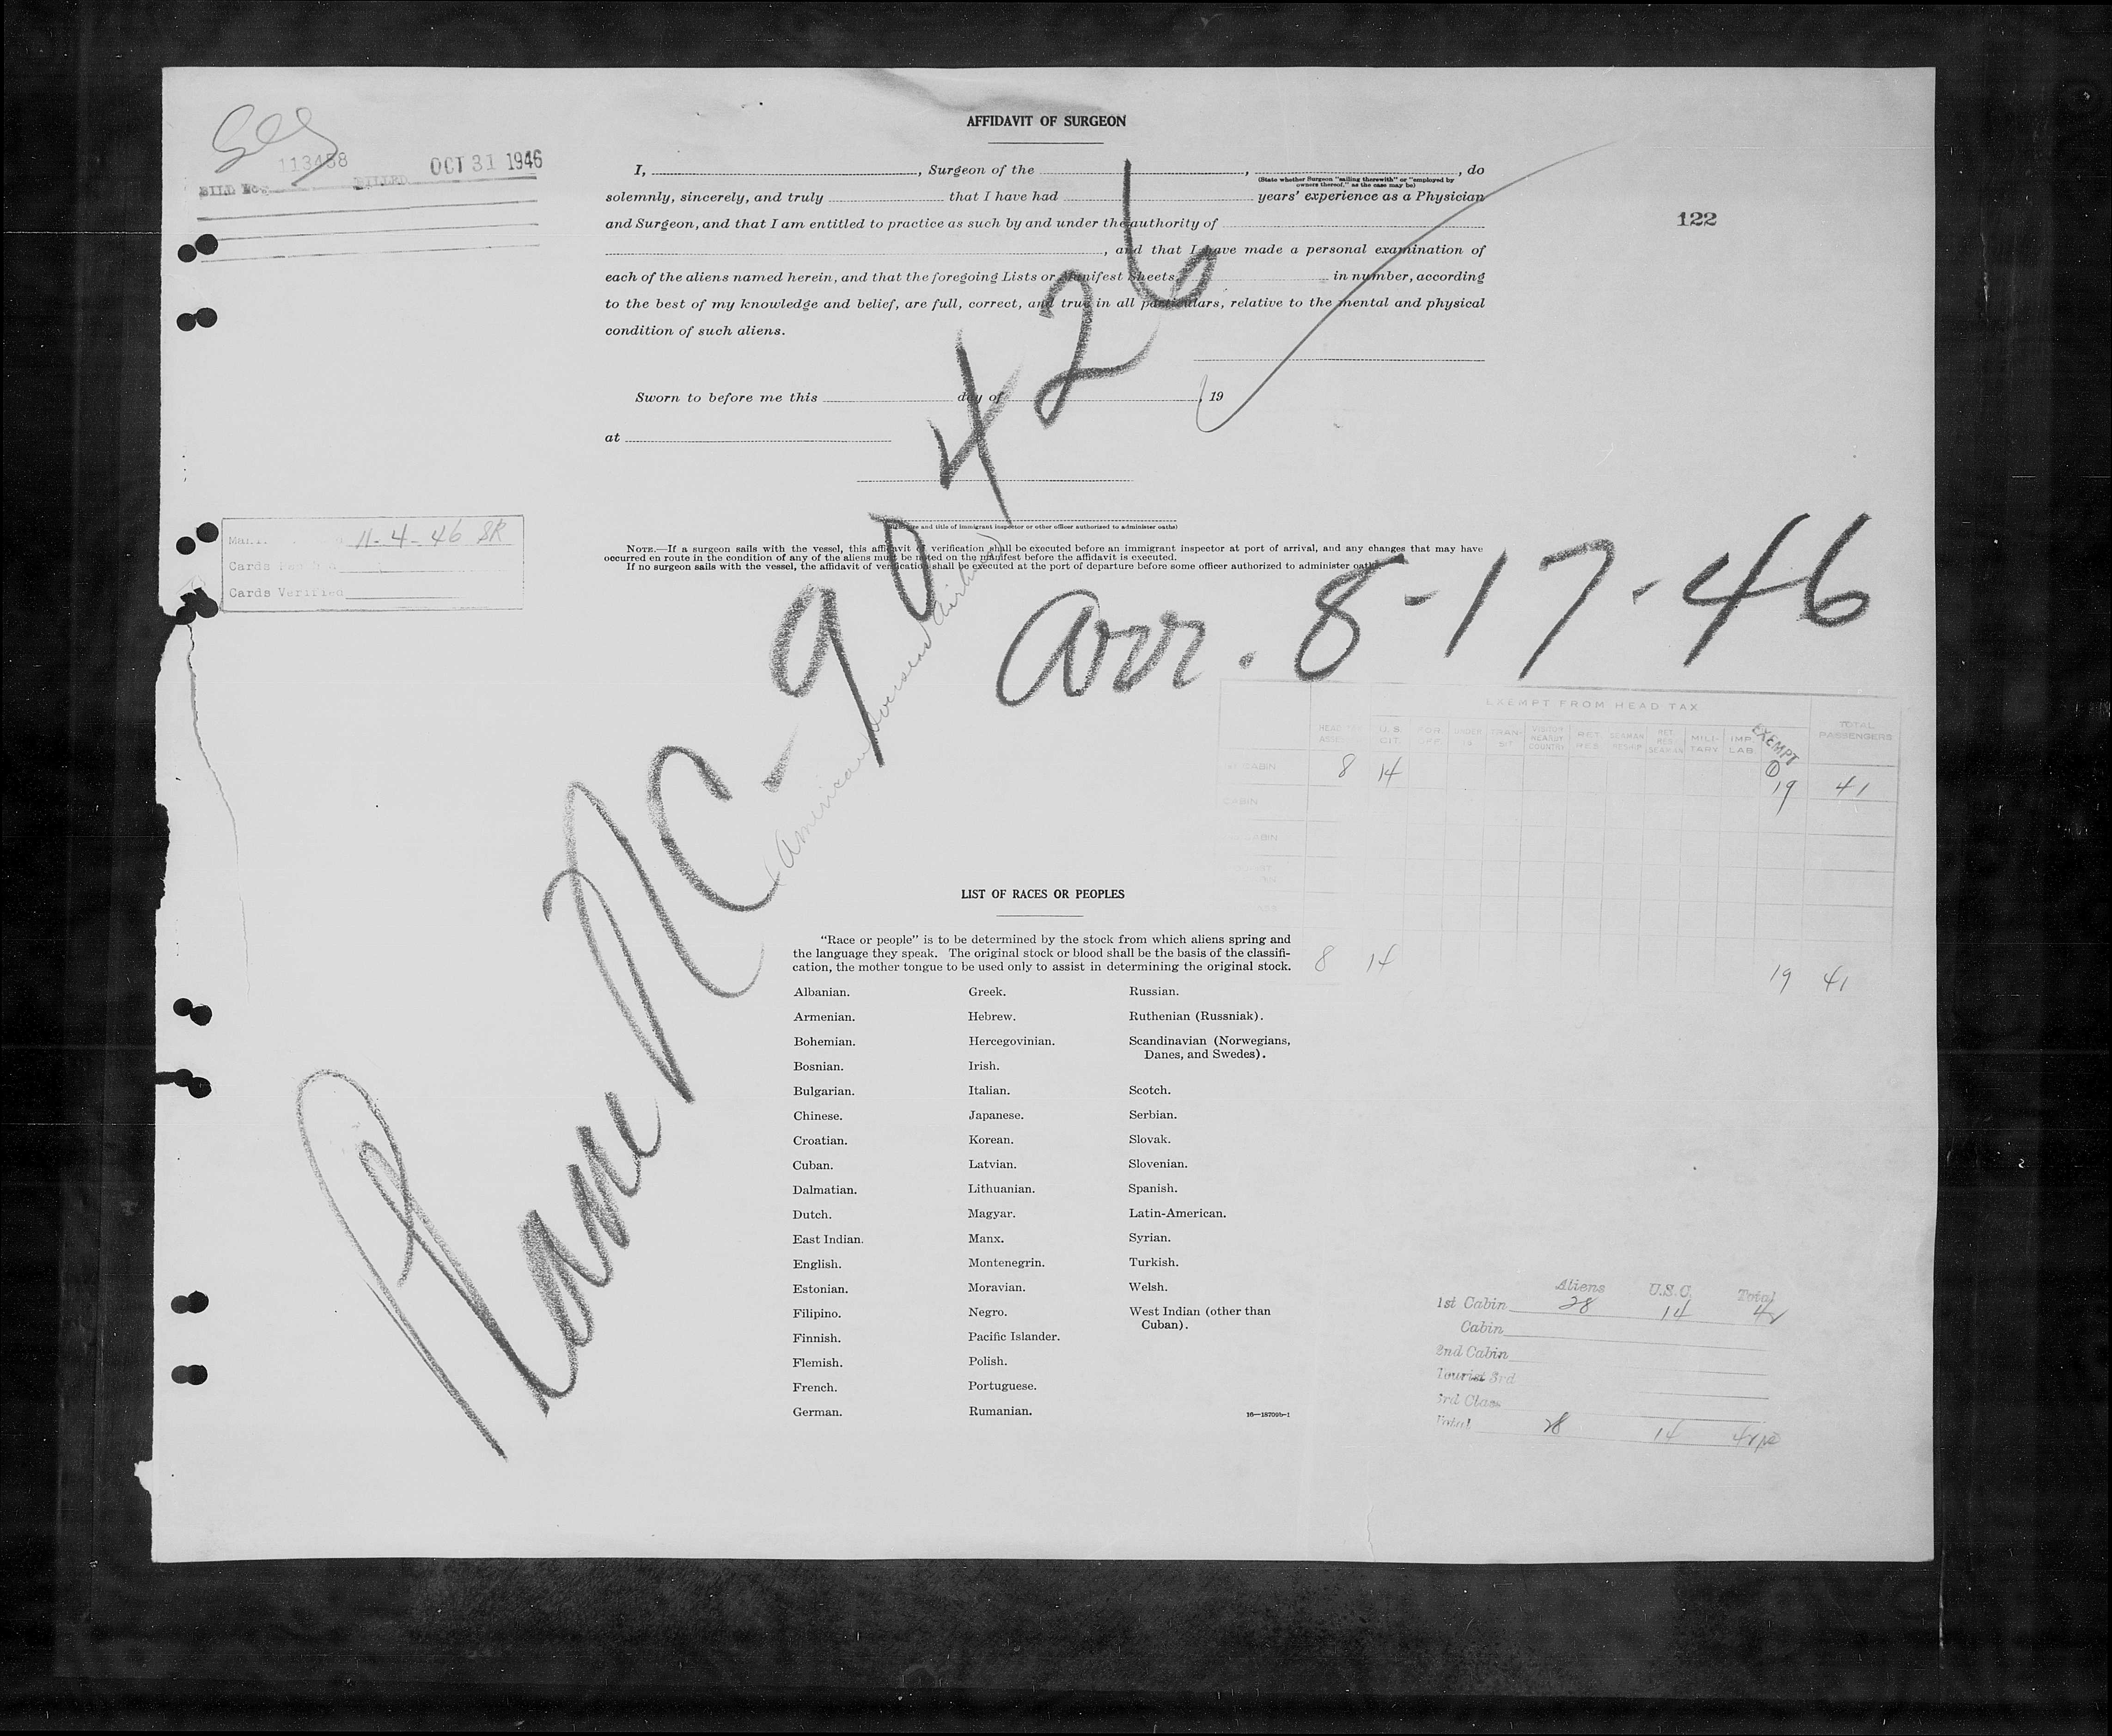 AFFIDAVIT OF SURGEON
113458
BILLED OCT 31 1946
122
I, , Surgeon of the , , do
(State whether Surgeon "sailing therewith" or "employed by
owners thereof," as the case may be)
solemnly, sincerely, and truly that I have had years' experience as a Physician
and Surgeon, and that I am entitled to practice as such by and under the authority of
, and that I have made a personal examination of
each of the aliens named herein, and that the foregoing Lists or Manifest Sheets, in number, according
to the best of my knowledge and belief, are full, correct, and true in all particulars, relative to the mental and physical
condition of such aliens.
Sworn to before me this day of , 19
at
and title of immigrant inspector or other officer authorized to administer oaths)
11-4-46 SR
Cards
Cards Verified
NOTE.—If a surgeon sails with the vessel, this affidavit of verification shall be executed before an immigrant inspector at port of arrival, and any changes that may have
occurred en route in the condition of any of the aliens must be noted on the manifest before the affidavit is executed.
If no surgeon sails with the vessel, the affidavit of verification shall be executed at the port of departure before some officer authorized to administer oaths.
Plane NC-90426
(American Overseas Airlines)
arr. 8-17-46
EXEMPT FROM HEAD TAX
HEAD TAX U.S. CIT. FOR. UNDER 16 TRANSIT VISITOR NEARBY COUNTRY RET. RES. SEAMAN RESHIP RET. RES. SEAMAN MILITARY IMP. LAB. EXEMPT TOTAL PASSENGERS
CABIN 8 14 ① 19 41
CABIN
CABIN
8 14 19 41
LIST OF RACES OR PEOPLES
"Race or people" is to be determined by the stock from which aliens spring and
the language they speak. The original stock or blood shall be the basis of the classifi-
cation, the mother tongue to be used only to assist in determining the original stock.
Albanian. Greek. Russian.
Armenian. Hebrew. Ruthenian (Russniak).
Bohemian. Hercegovinian. Scandinavian (Norwegians,
Danes, and Swedes).
Bosnian. Irish.
Bulgarian. Italian. Scotch.
Chinese. Japanese. Serbian.
Croatian. Korean. Slovak.
Cuban. Latvian. Slovenian.
Dalmatian. Lithuanian. Spanish.
Dutch. Magyar. Latin-American.
East Indian. Manx. Syrian.
English. Montenegrin. Turkish.
Estonian. Moravian. Welsh.
Filipino. Negro. West Indian (other than
Cuban).
Finnish. Pacific Islander.
Flemish. Polish.
French. Portuguese.
German. Rumanian.
16—18709b-1
Aliens U.S.C. Total
1st Cabin 28 14 42
Cabin
2nd Cabin
Tourist 3rd
3rd Class
Total 28 14 42